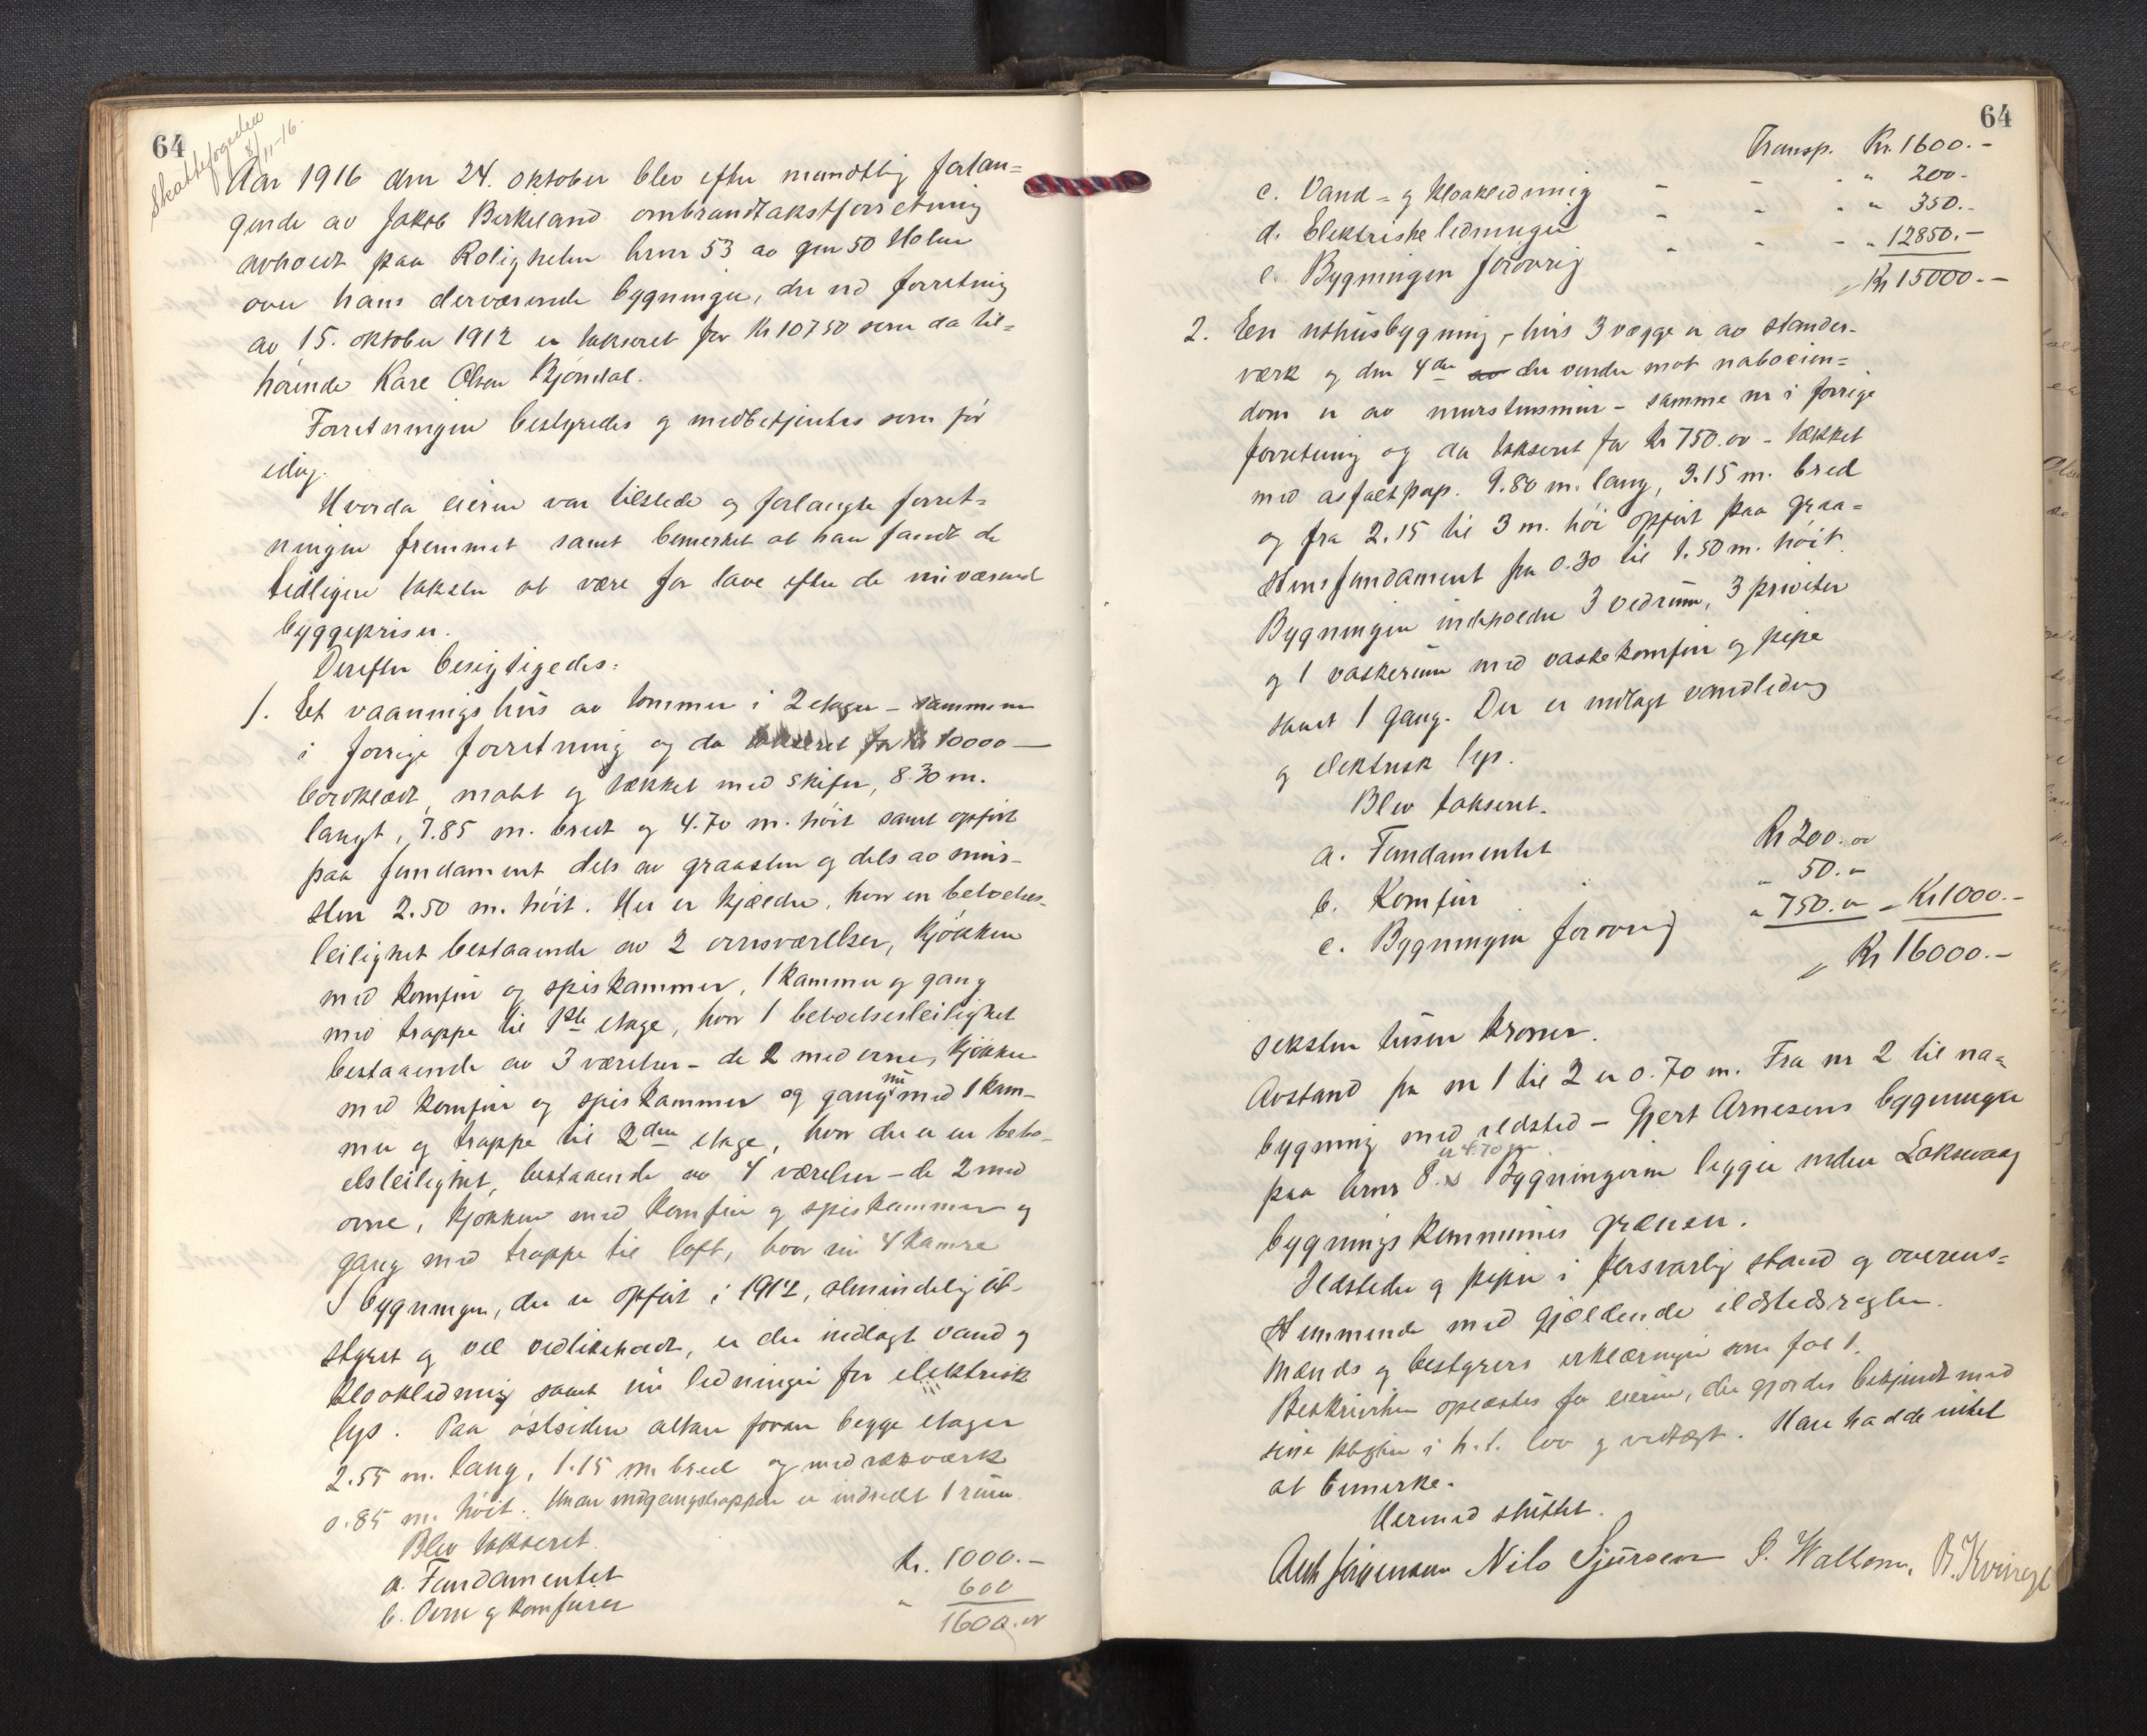 64
Skattefogeden
8/11-16.
Aar 1916 den 24. oktober blev efter mundtlig forlan=
gende av Jakob Birkeland ombrandtakstforretning
avholdt paa Roligheten brnr 53 av gnr 50 Holen
over hans derværende bygninger, der ved forretning
av 15. oktober 1912 er takseret for Kr 10750 som da til=
hørende Karl Olsen Bjørndal.
Forretningen bestyredes og medbetjentes som før
idag.
Hvorda eieren var tilstede og forlangte forret=
ningen fremmet samt bemerket at han fandt de
tidligere takster at være for lave efter de nuværende
byggepriser.
Derefter besigtigedes:
1. Et vaaningshus av tømmer i 2 etager – samme nr
i forrige forretning og da takseret for Kr 10000 —
bordklædt, malt og tækket med skifer, 8.30 m.
langt, 7.85 m. bredt og 4.70 m. høit samt opført
paa fundament dels av graasten og dels av mur-
sten 2.50 m. høit. Her er kjælder, hvor en beboelses-
leilighet bestaaende av 2 ovnsværelser, kjøkken
med komfur og spiskammer, 1 kammer og gang
med trappe til 1ste etage, hvor 1 beboelsesleilighet
bestaaende av 3 værelser – de 2 med ovne, kjøkken
med komfur og spiskammer og gang nu med 1 kam-
mer og trappe til 2den etage, hvor der er en bebo-
elsleilighet, bestaaende av 4 værelser – de 2 med
ovne, kjøkken med komfur og spiskammer og
gang med trappe til loft, hvor nu 4 kamre
I bygningen, der er opført i 1912, almindelig ut-
styret og vel vedlikeholdt, er der indlagt vand og
kloakledning samt nu ledninger for elektrisk
lys. Paa østsiden altan foran begge etager
2.55 m. lang, 1.15 m. bred og med rækværk
0.85 m. høit. Under indgangstrappen er indredet 1 rum.
Blev takseret.
a. Fundamentet Kr. 1000.–
b. Ovne og komfurer " 600
1600.00
64
Transp. Kr. 1600.–
c. Vand= og kloakledning - - - " 200-
d. Elektriske ledninger - - - " 350.-
e. Bygningen forøvrig - - - " 12850.–
Kr 15000.–
2. En uthusbygning, hvis 3 vægge er av stander-
værk og den 4de av der vender mot naboeien=
dom er av murstensmur – samme nr i forrige
forretning og da takseret for Kr 750.00 – tækket
med asfaltpap. 9.80 m. lang, 3.15 m. bred
og fra 2.15 til 3 m. høi opført paa graa=
stensfundament fra 0.30 til 1.50 m. høit.
Bygningen indeholder 3 vedrum, 3 priveter
og 1 vaskerum med vaskekomfur og pipe
samt 1 gang. Der er indlagt vandledning
og elektrisk lys.
Blev takseret.
a. Fundamentet Kr 200.00
b. Komfur " 50.-
c. Bygningen forøvrig " 750.00 – Kr 1000.–
Kr 16000.–
seksten tusen kroner.
Avstand fra nr 1 til 2 er 0.70 m. Fra nr 2 til na=
bygning med ildsted – Gjert Arnesens bygninger
paa brnr 8. er 4.70 m Bygningerne ligger inden Laksevaag
bygningskommunes grænser.
Ildsteder og piper i forsvarlig stand og overens=
stemmende med gjældende ildstedsregler.
Mænds og bestyrers erklæringer som fol 1.
Beskrivelsen oplæstes for eieren, der gjordes bekjendt med
sine pligter i h. t. lov og vedtægt. Han hadde intet
at bemerke.
Hermed sluttet.
Nils Sjursen